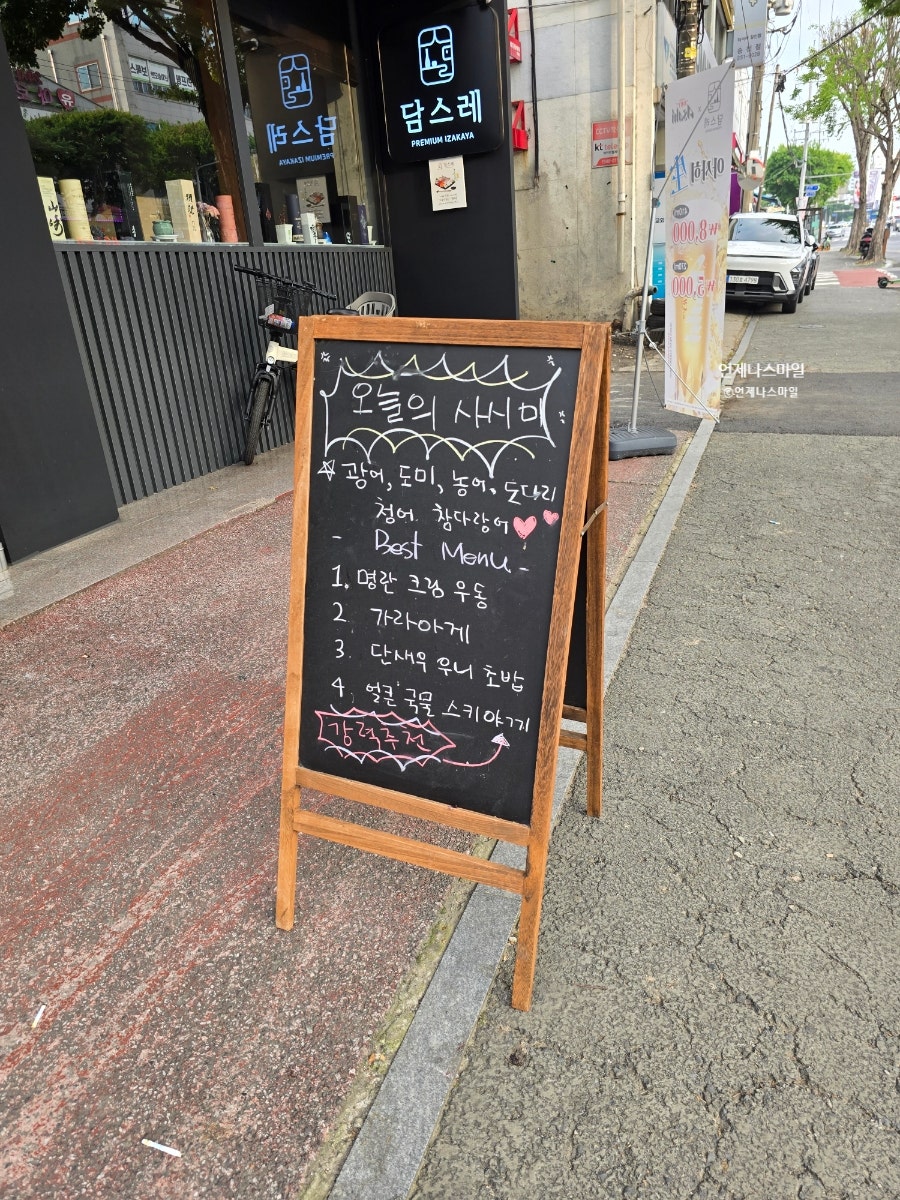 담스레
PREMIUM IZAKAYA
담스레
PREMIUM IZAKAYA
아사히 生
₩8,000
₩5,000
언제나스마일
©언제나스마일
오늘의 사시미
광어, 도미, 농어, 도다리
청어, 참다랑어
- Best Menu -
1. 명란 크림 우동
2. 가라아게
3. 단새우 우니 초밥
4. 얼큰 국물 스키야끼
강력추천